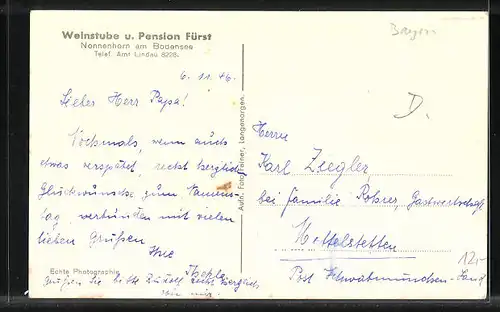 Weinstube u. Pension Fürst
Nonnenhorn am Bodensee
Telef. Amt Lindau 8228.
Bayern
6. 11. 46.
D.
Lieber Herr Papa!
Nochmals, wenn auch
etwas verspätet, recht herzliche
Glückwünsche zum Namens-
tag, verbunden mit vielen
lieben Grüßen
Ihre
Thekla
Echte Photographie
Grüßen Sie bitte Rudolf recht herzlich
von mir.
Aufn. Foto Feiner, Langenargen.
Herrn
Karl Ziegler
bei Familie Rohrer, Gastwirtschaft
Mittelstetten
Post Schwabmünchen-Land
12,-